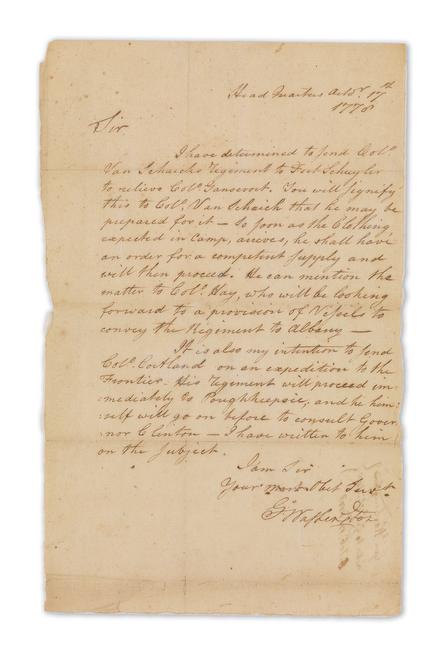 Head Quarters Octobr. 17th
1778
Sir
I have determined to send Colo.
Van Schaick's regiment to Fort Schuyler
to relieve Colo. Gansevort. You will signify
this to Colo. Van Schaick that he may be
prepared for it — So soon as the Clothing
expected in Camp, arives, he shall have
an order for a competent supply and
will then proceed. He can mention the
matter to Colo. Hay, who will be looking
forward to a provision of Vessels to
convey the Regiment to Albany —
It is also my intention to send
Colo. Cortland on an expedition to the
Frontier. His regiment will proceed im-
mediately to Poughkeepsie, and he him-
self will go on before to consult Gover-
nor Clinton — I have written to him
on the subject.
I am Sir
Your most Obet Servt.
Go. Washington